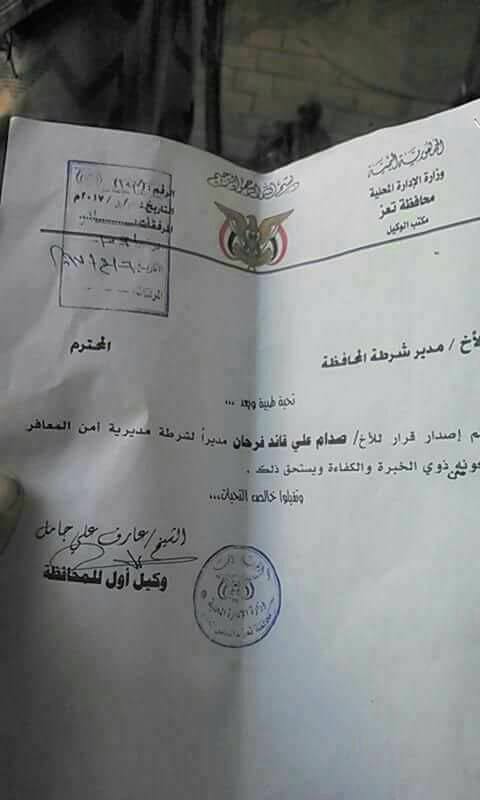 بسم الله الرحمن الرحيم
الجمهورية اليمنية
وزارة الإدارة المحلية
محافظة تعز
مكتب الوكيل
الرقم:
التاريخ: / / ٢٠١٧م
المرفقات:
التاريخ:
المرفقات:
لأخ / مدير شرطة المحافظة المحترم
تحية طيبة وبعد ...
م إصدار قرار للأخ/ صدام علي قائد فرحان مديراً لشرطة مديرية أمن المعافر
كونه من ذوي الخبرة والكفاءة ويستحق ذلك .
وتقبلوا خالص التحيات...
الشيخ/عارف علي جامل
وكيل أول للمحافظة
وزارة الإدارة المحلية